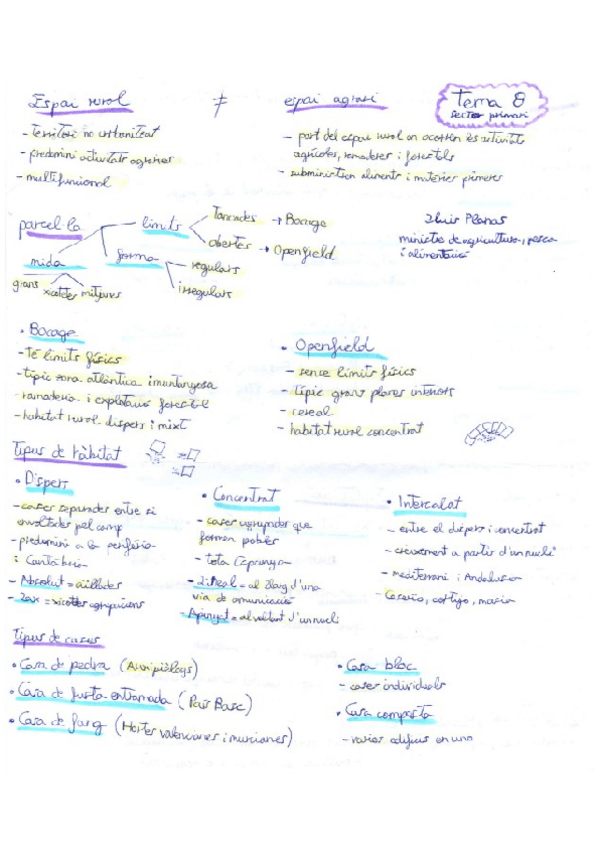 Espai rural ≠ espai agrari
Tema 8
Sector primari
- Territori no urbanitzat
- predomini activitats agràries
- multifuncional
- part del espai rural on ocorren les activitats
agrícoles, ramaderes i forestals
- subministren aliments i matèries primeres
parcel·la
límits
tancades → Bocage
obertes → Openfield
forma
regulars
irregulars
mida
grans xicotets mitjanes
Lluis Planas
ministre de agricultura, pesca
i alimentació
• Bocage
- Té límits físics
- típic zona atlàntica i muntanyosa
- ramaderia i explotació forestal
- habitat rural dispers i mixt
• Openfield
- sense límits físics
- típic grans planes interiors
- cereal
- habitat rural concentrat
Tipus de hàbitat
• Dispers
- cases separades entre si
envoltades pel camp
- predomini a la perifèria
i Cantàbria
- Absolut = aïllades
- Lax = xicotetes agrupacions
• Concentrat
- cases agrupades que
formen pobles
- tota Espanya
- Lineal = al llarg d'una
via de comunicació
- Apinyat = al voltant d'un nucli
• Intercalat
- entre el dispers i concentrat
- creixement a partir d'un nucli
- mediterrani i Andalusia
- Caserío, cortijo, masia
Tipus de cases
• Casa de pedra (Arxipèlags)
• Casa de fusta entramada (País Basc)
• Casa de fang (Hortes valencianes i murcianes)
• Casa bloc
- cases individuals
• Casa composta
- varios edificis en uno